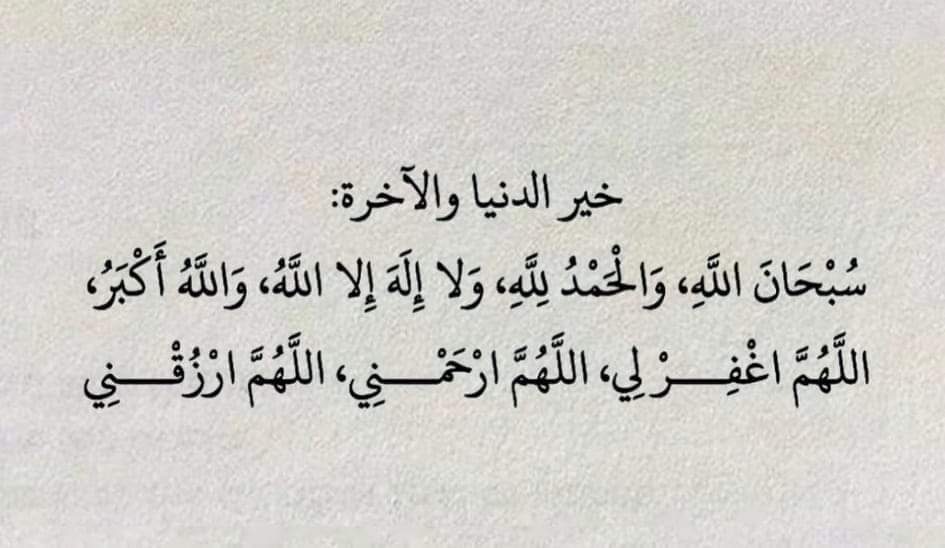 خير الدنيا والآخرة:
سُبْحَانَ اللَّهِ، وَالْحَمْدُ لِلَّهِ، وَلا إِلَهَ إِلا اللَّهُ، وَاللَّهُ أَكْبَرُ،
اللَّهُمَّ اغْفِـــرْ لِي، اللَّهُمَّ ارْحَمْـــنِي، اللَّهُمَّ ارْزُقْـــنِي